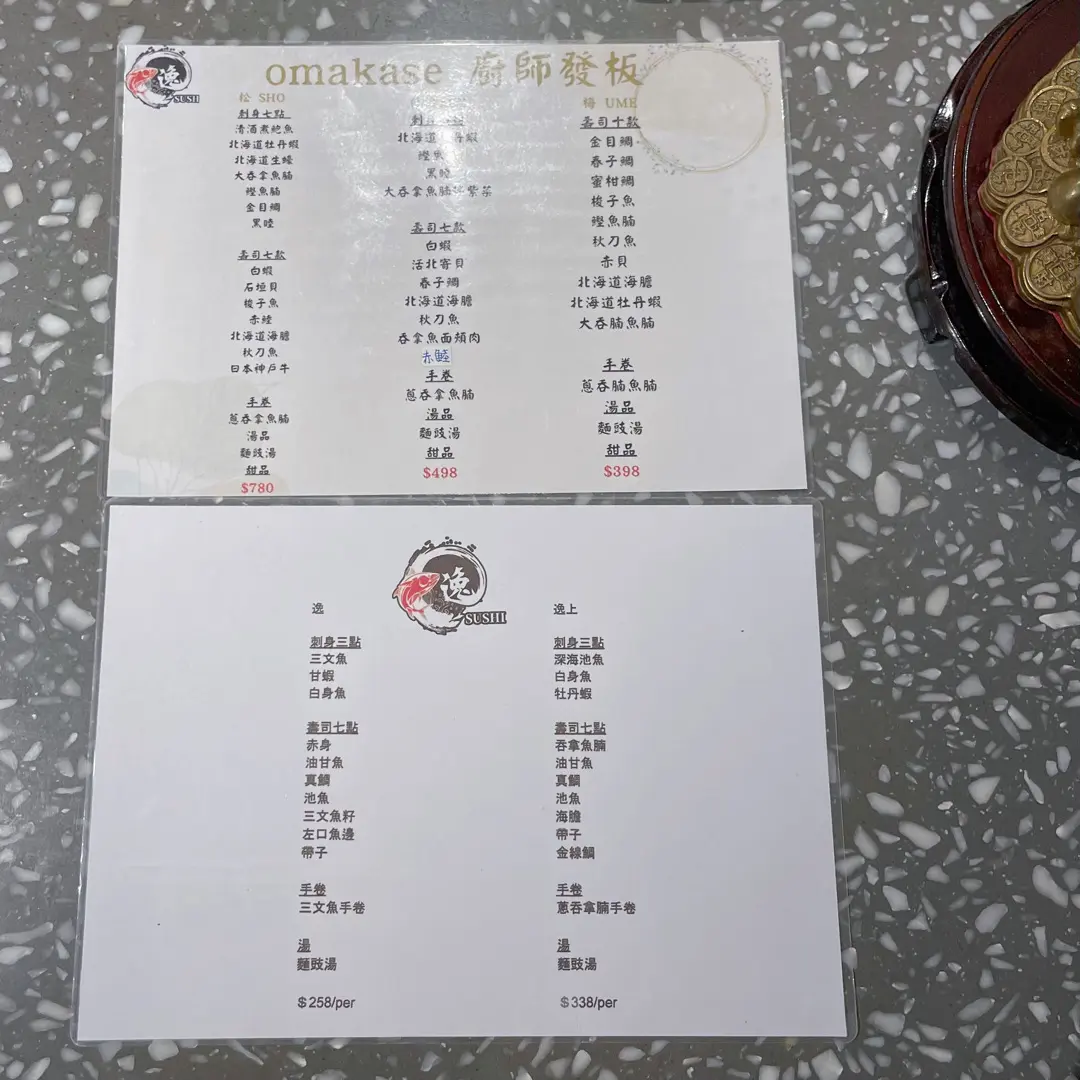 逸
SUSHI
omakase 廚師發板
松 SHO
刺身七點
清酒煮鮑魚
北海道牡丹蝦
北海道生蠔
大吞拿魚腩
鰹魚腩
金目鯛
黑鯥
壽司七款
白蝦
石垣貝
梭子魚
赤鯥
北海道海膽
秋刀魚
日本神戶牛
手卷
蔥吞拿魚腩
湯品
麵豉湯
甜品
$780
北海道牡丹蝦
鰹魚
黑鯥
大吞拿魚腩 紫菜
壽司七款
白蝦
活北寄貝
春子鯛
北海道海膽
秋刀魚
吞拿魚面頰肉
赤鯥
手卷
蔥吞拿魚腩
湯品
麵豉湯
甜品
$498
梅 UME
壽司十款
金目鯛
春子鯛
蜜柑鯛
梭子魚
鰹魚腩
秋刀魚
赤貝
北海道海膽
北海道牡丹蝦
大吞腩魚腩
手卷
蔥吞腩魚腩
湯品
麵豉湯
甜品
$398
逸
SUSHI
逸
刺身三點
三文魚
甘蝦
白身魚
壽司七點
赤身
油甘魚
真鯛
池魚
三文魚籽
左口魚邊
帶子
手卷
三文魚手卷
湯
麵豉湯
$258/per
逸上
刺身三點
深海池魚
白身魚
牡丹蝦
壽司七點
吞拿魚腩
油甘魚
真鯛
池魚
海膽
帶子
金線鯛
手卷
蔥吞拿腩手卷
湯
麵豉湯
$338/per